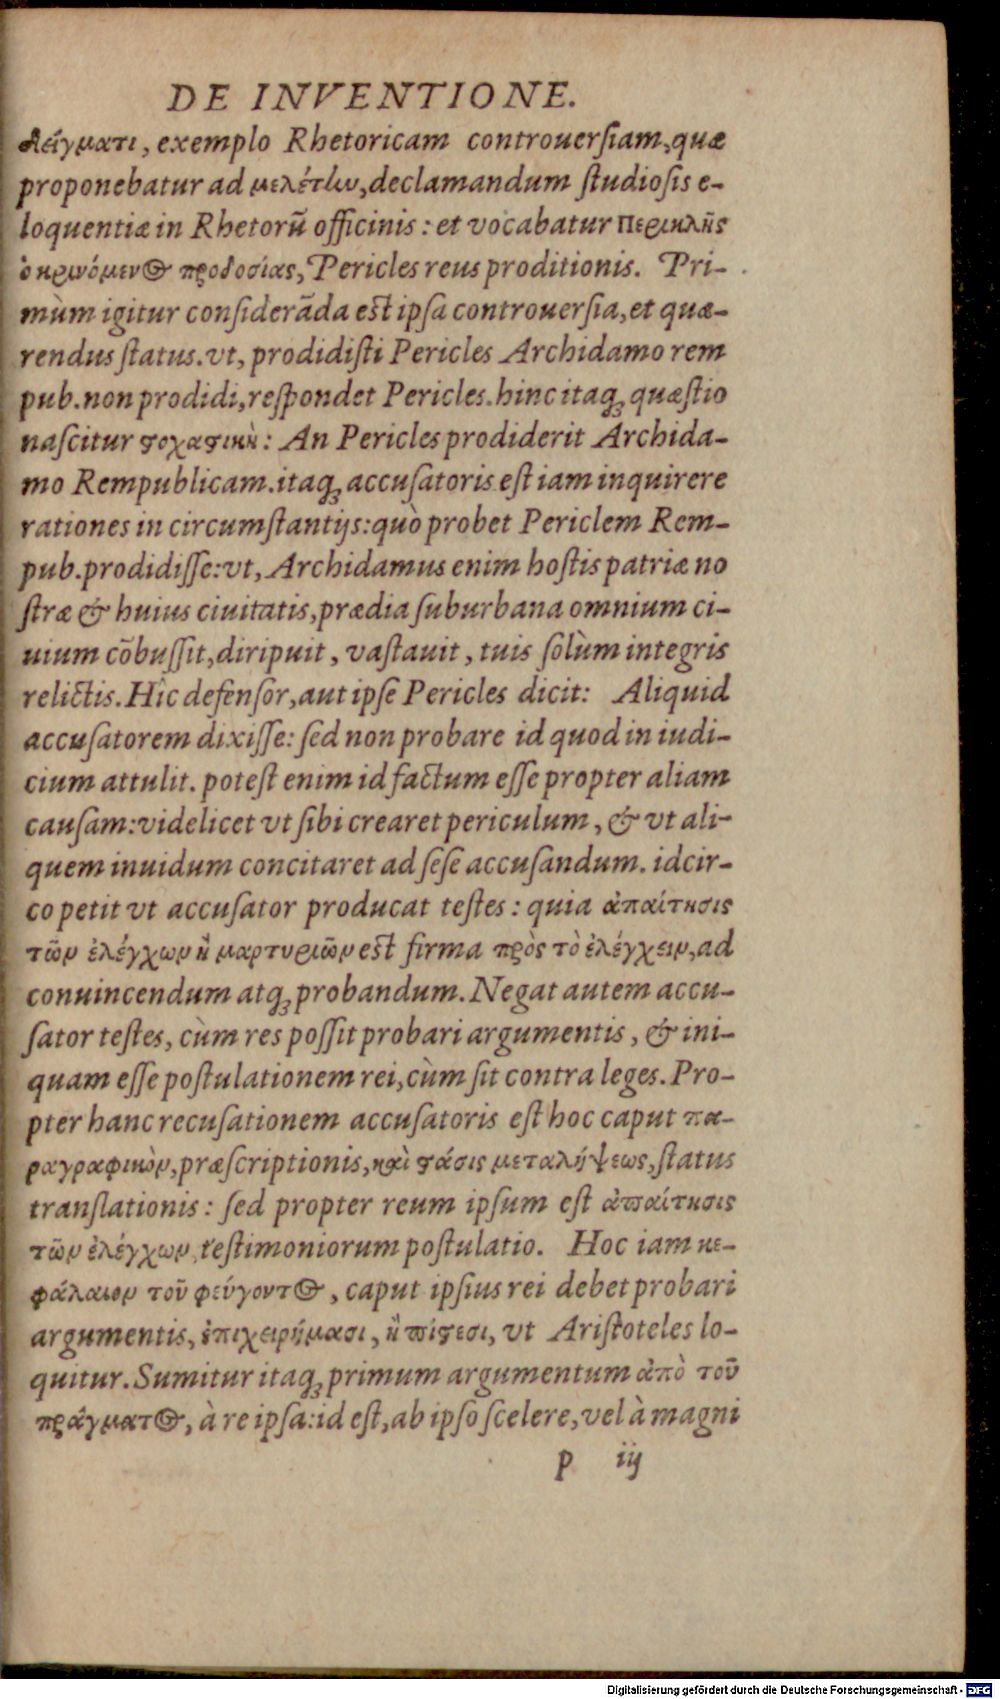 DE INVENTIONE.
δείγματι, exemplo Rhetoricam controuersiam, quæ
proponebatur ad μελέτην, declamandum studiosis e-
loquentiæ in Rhetorū officinis: et vocabatur Περικλῆς
ὁ κρινόμενος προδοσίας, Pericles reus proditionis. Pri-
mùm igitur considerāda est ipsa controuersia, et quæ-
rendus status. vt, prodidisti Pericles Archidamo rem
pub. non prodidi, respondet Pericles. hinc itaq; quæstio
nascitur στοχαστικὴ: An Pericles prodiderit Archida-
mo Rempublicam. itaq; accusatoris est iam inquirere
rationes in circumstantijs: quò probet Periclem Rem-
pub. prodidisse: vt, Archidamus enim hostis patriæ no
stræ & huius ciuitatis, prædia suburbana omnium ci-
uium cōbussit, diripuit, vastauit, tuis solùm integris
relictis. Hîc defensor, aut ipse Pericles dicit: Aliquid
accusatorem dixisse: sed non probare id quod in iudi-
cium attulit. potest enim id factum esse propter aliam
causam: videlicet vt sibi crearet periculum, & vt ali-
quem inuidum concitaret ad sese accusandum. idcir-
co petit vt accusator producat testes: quia ἀπαίτησις
τῶν ἐλέγχων ἢ μαρτυριῶν est firma πρὸς τὸ ἐλέγχειν, ad
conuincendum atq; probandum. Negat autem accu-
sator testes, cùm res possit probari argumentis, & ini-
quam esse postulationem rei, cùm sit contra leges. Pro-
pter hanc recusationem accusatoris est hoc caput πα-
ραγραφικὸν, præscriptionis, καὶ στάσις μεταλήψεως, status
translationis: sed propter reum ipsum est ἀπαίτησις
τῶν ἐλέγχων, testimoniorum postulatio. Hoc iam κε-
φάλαιον τοῦ φεύγοντος, caput ipsius rei debet probari
argumentis, ἐπιχειρήμασι, ἢ πίστεσι, vt Aristoteles lo-
quitur. Sumitur itaq; primum argumentum ἀπὸ τοῦ
πράγματος, à re ipsa: id est, ab ipso scelere, vel à magni
p iij
Digitalisierung gefördert durch die Deutsche Forschungsgemeinschaft - DFG